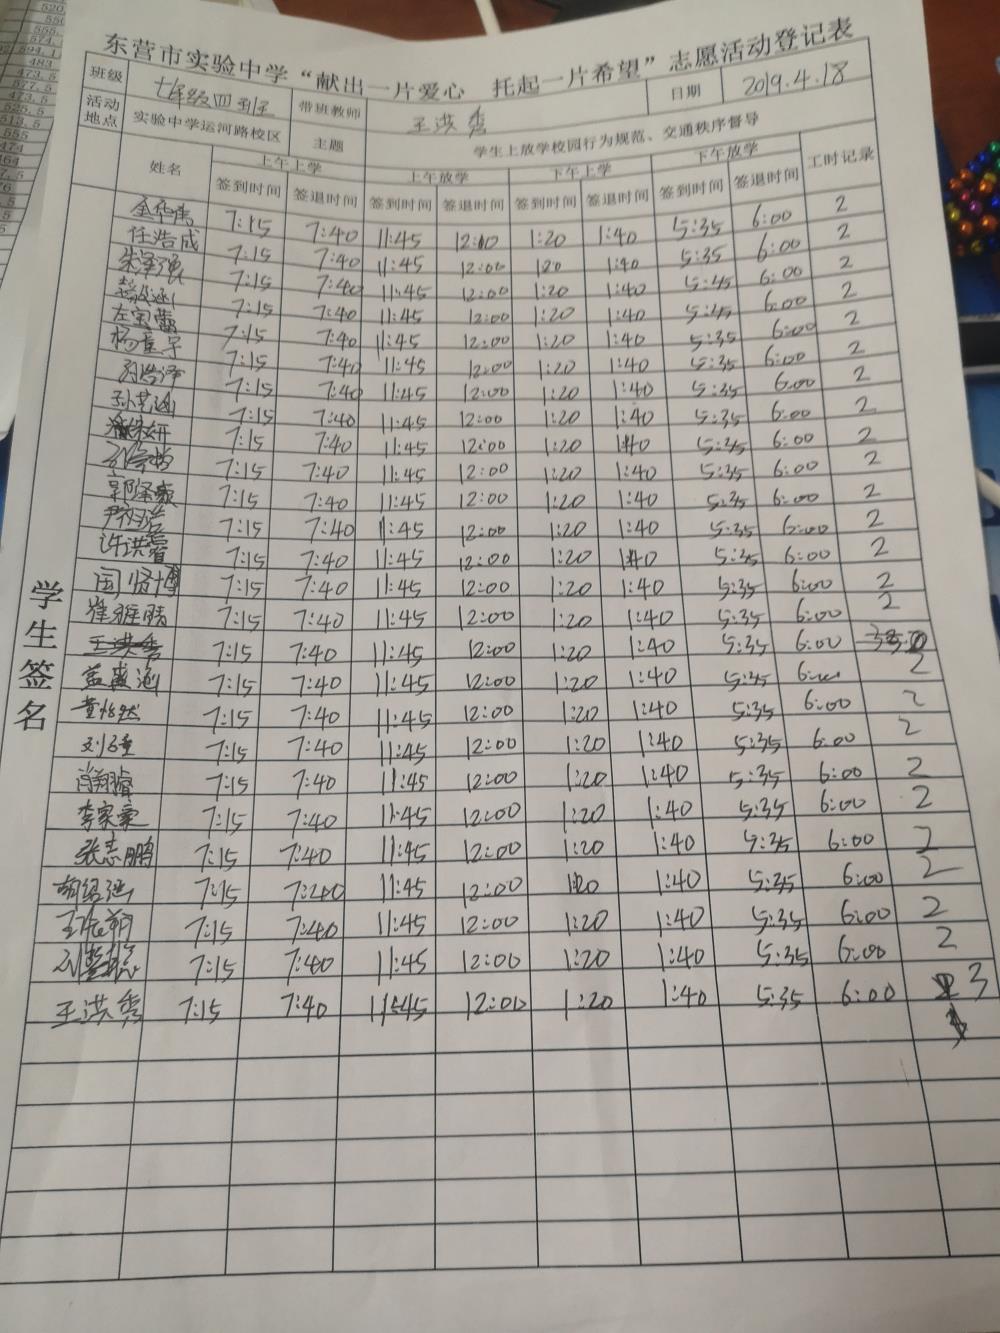 东营市实验中学“献出一片爱心 托起一片希望”志愿活动登记表
班级 七年级四班 带班教师 王洪秀 日期 2019.4.18
活动地点 实验中学运河路校区 主题 学生上放学校园行为规范、交通秩序督导
姓名 上午上学 上午放学 下午上学 下午放学 工时记录
签到时间 签退时间 签到时间 签退时间 签到时间 签退时间 签到时间 签退时间
学生签名
7:15 7:40 11:45 12:00 1:20 1:40 5:35 6:00 2
任浩成 7:15 7:40 11:45 12:00 1:40 5:35 6:00 2
朱泽强 7:15 7:40 11:45 12:00 1:20 1:40 5:45 6:00 2
7:15 7:40 11:45 12:00 1:20 1:40 5:45 6:00 2
7:15 7:40 11:45 12:00 1:20 1:40 5:35 6:00 2
7:15 7:40 11:45 12:00 1:20 1:40 5:35 6:00 2
刘浩泽 7:15 7:40 11:45 12:00 1:20 1:40 5:35 6:00 2
7:15 7:40 11:45 12:00 1:20 1:40 5:35 6:00 2
7:15 7:40 11:45 12:00 1:20 1:40 5:35 6:00 2
7:15 7:40 11:45 12:00 1:20 1:40 5:35 6:00 2
7:15 7:40 11:45 12:00 1:20 1:40 5:35 6:00 2
7:15 7:40 11:45 12:00 1:20 1:40 5:35 6:00 2
许洪睿 7:15 7:40 11:45 12:00 1:20 1:40 5:35 6:00 2
周贤博 7:15 7:40 11:45 12:00 1:20 1:40 5:35 6:00 2
崔雅晴 7:15 7:40 11:45 12:00 1:20 1:40 5:35 6:00 2
王洪秀 7:15 7:40 11:45 12:00 1:20 1:40 5:35 6:00
盖盛涵 7:15 7:40 11:45 12:00 1:20 1:40 5:35 6:00 2
董怡然 7:15 7:40 11:45 12:00 1:20 1:40 5:35 6:00 2
7:15 7:40 11:45 12:00 1:20 1:40 5:35 6:00 2
肖翔睿 7:15 7:40 11:45 12:00 1:20 1:40 5:35 6:00 2
李家豪 7:15 7:40 11:45 12:00 1:20 1:40 5:35 6:00 2
张志鹏 7:15 7:40 11:45 12:00 1:20 1:40 5:35 6:00 2
胡绍涵 7:15 7:40 11:45 12:00 1:20 1:40 5:35 6:00 2
7:15 7:40 11:45 12:00 1:20 1:40 5:35 6:00 2
7:15 7:40 11:45 12:00 1:20 1:40 5:35 6:00 2
王洪秀 7:15 7:40 11:45 12:00 1:20 1:40 5:35 6:00 3